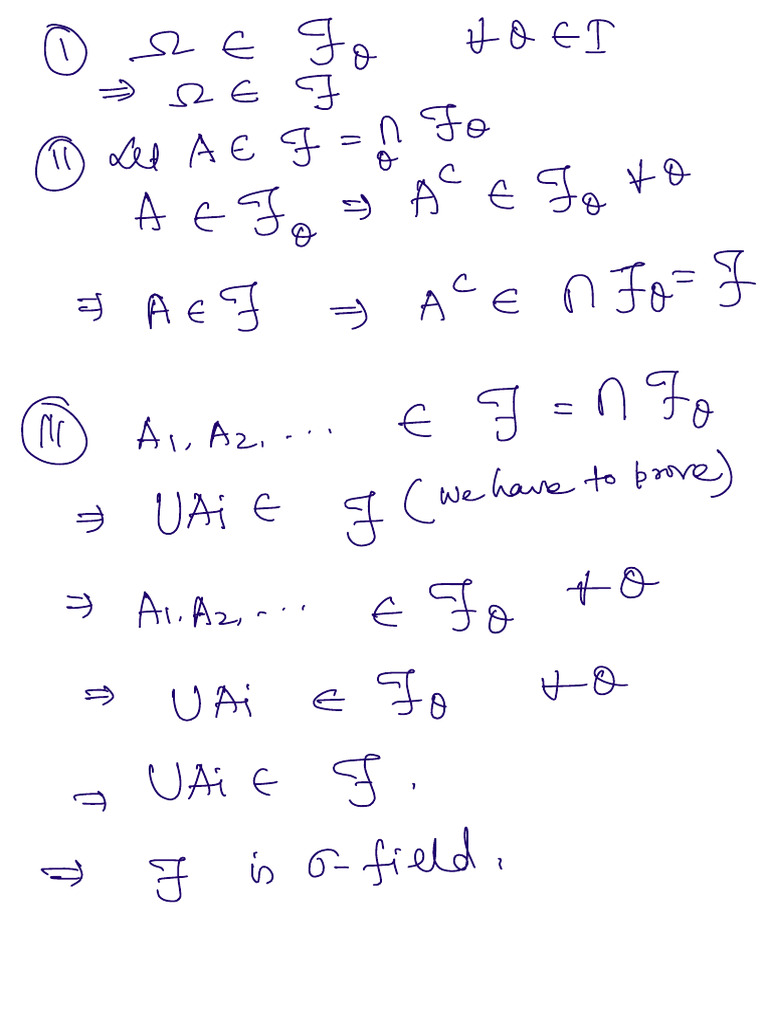 ① Ω ∈ ℱ_θ ∀ θ ∈ I
⇒ Ω ∈ ℱ
⑪ Let A ∈ ℱ = ∩_θ ℱ_θ
A ∈ ℱ_θ ⇒ A^C ∈ ℱ_θ ∀ θ
⇒ A ∈ ℱ ⇒ A^C ∈ ∩ ℱ_θ = ℱ
(III) A₁, A₂, ... ∈ ℱ = ∩ ℱ_θ
⇒ ∪Ai ∈ ℱ (we have to prove)
⇒ A₁, A₂, ... ∈ ℱ_θ ∀ θ
⇒ ∪Ai ∈ ℱ_θ ∀ θ
⇒ ∪Ai ∈ ℱ.
⇒ ℱ is σ-field.